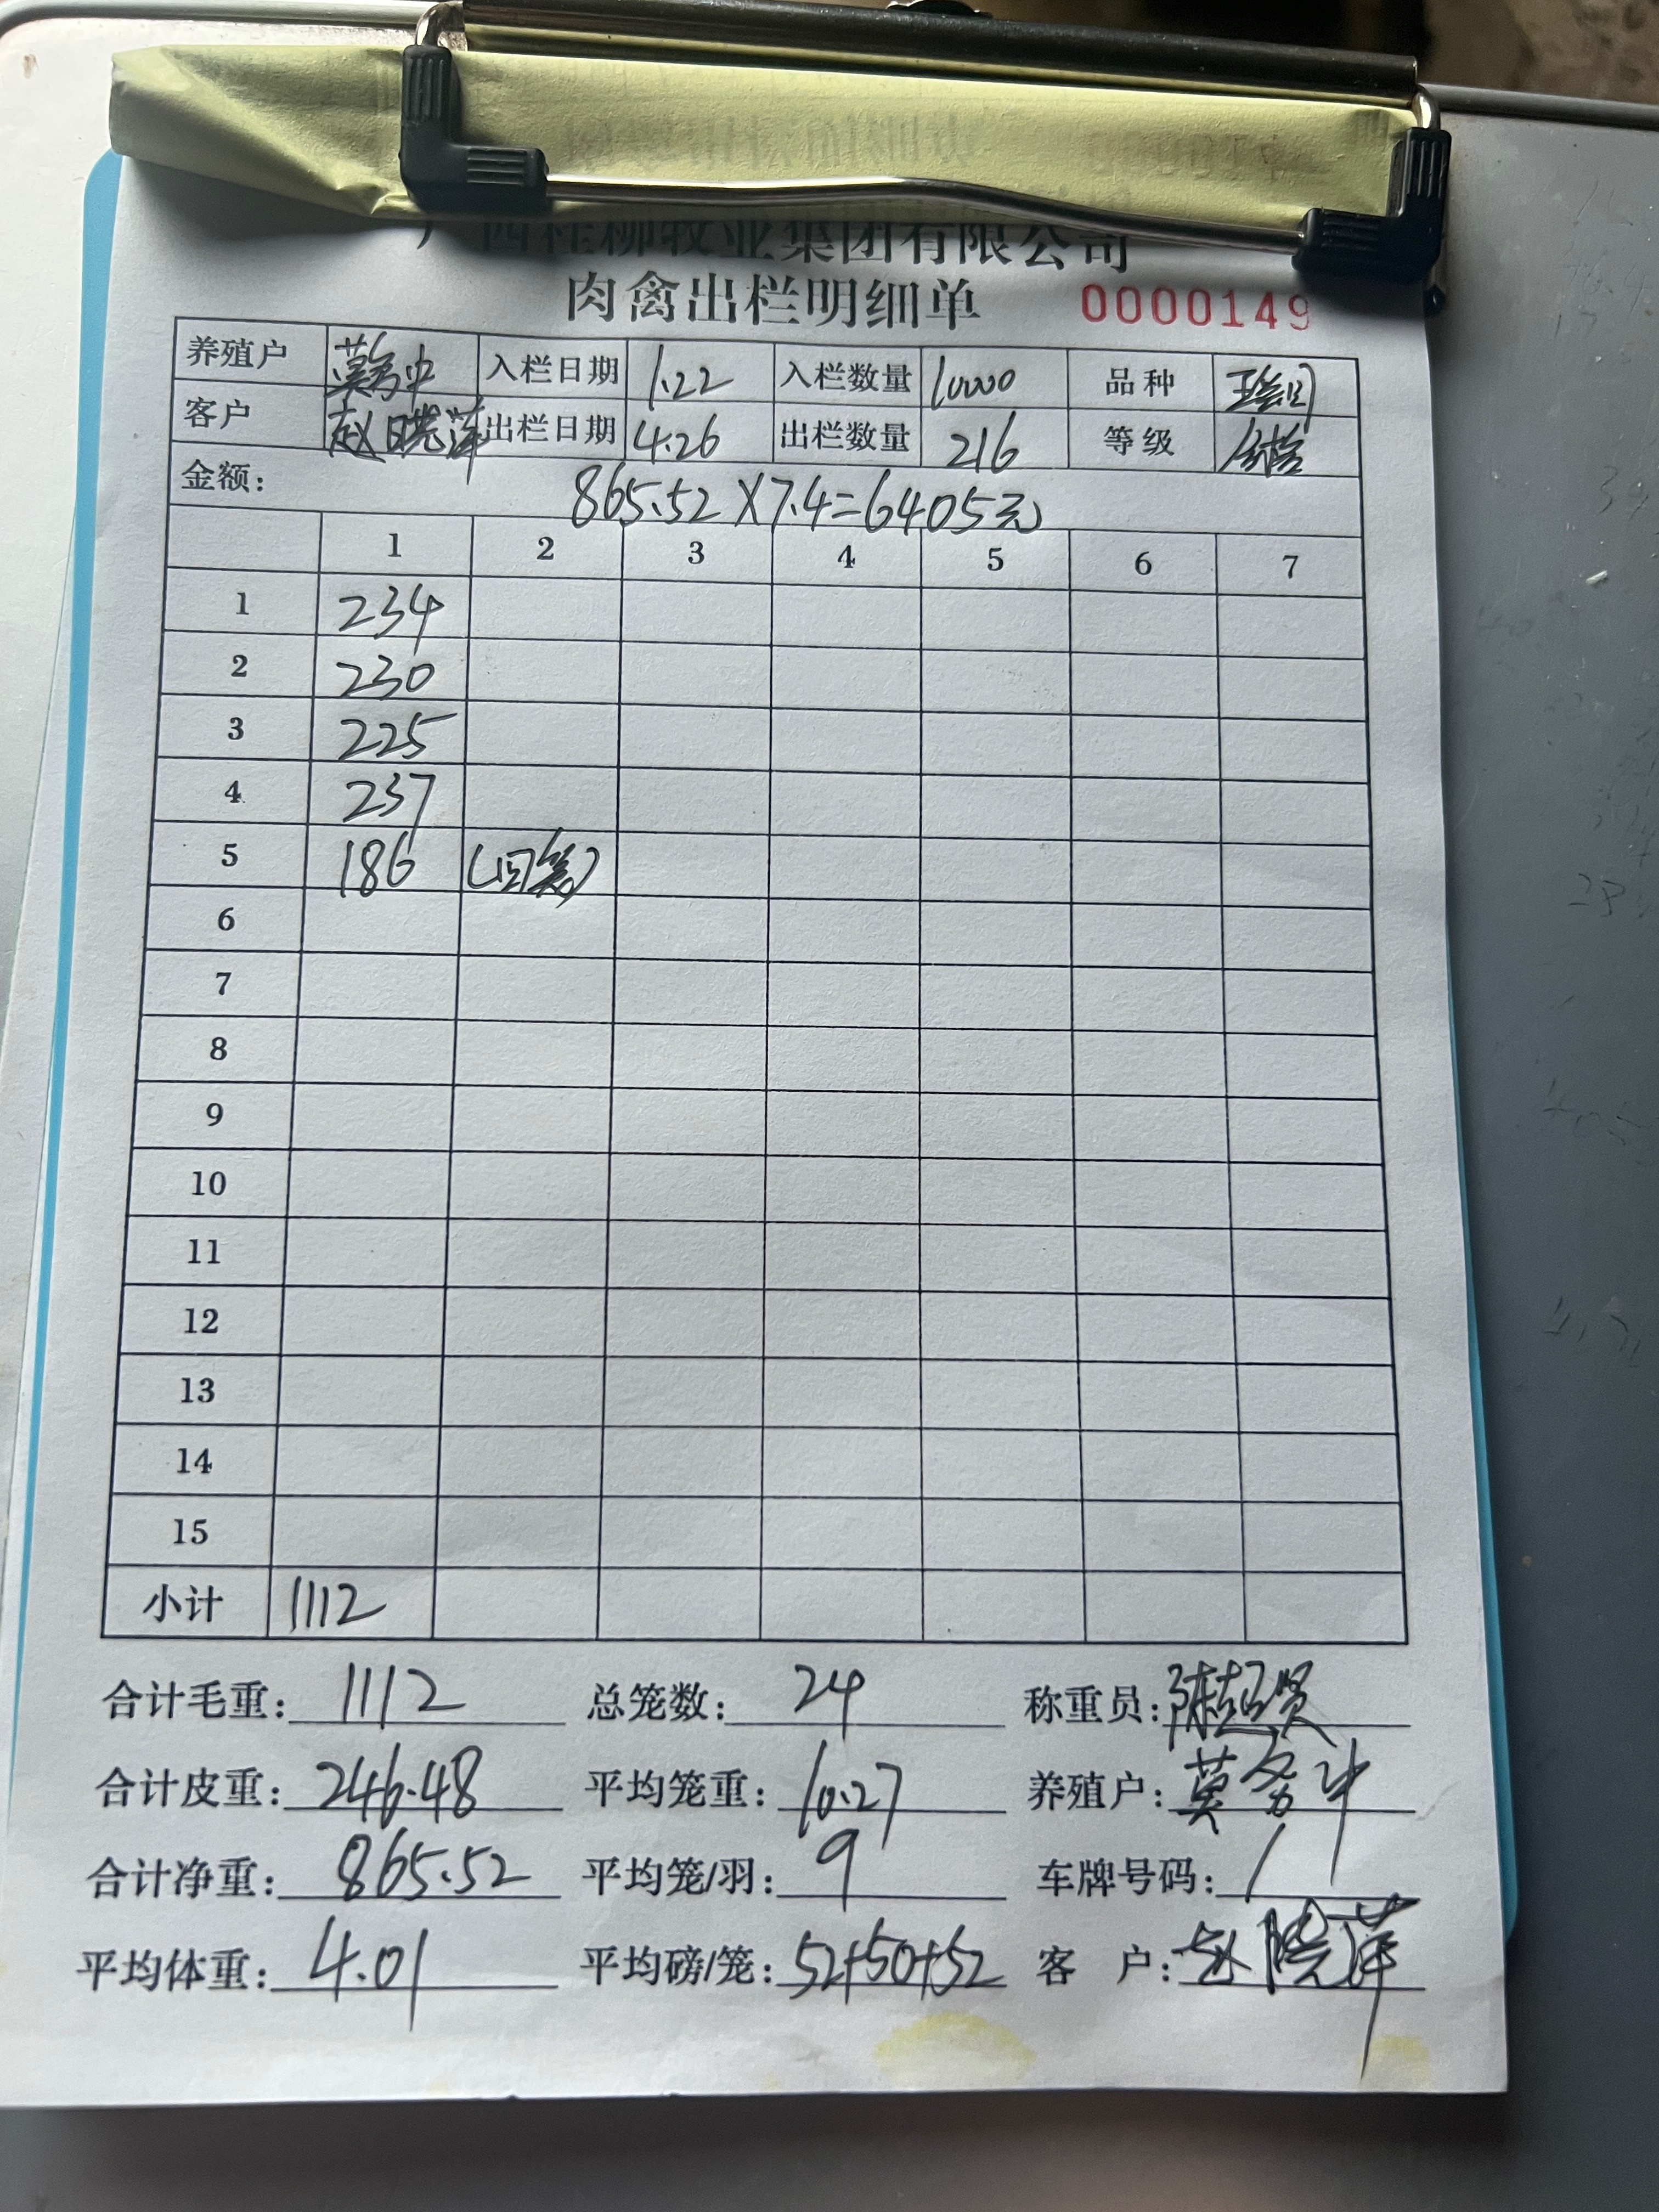 广西桂柳牧业集团有限公司
肉禽出栏明细单 0000149
养殖户 入栏日期 1.22 入栏数量 10000 品种
客户 赵晓萍 出栏日期 4.26 出栏数量 216 等级
金额: 865.52×7.4=6405元
1 2 3 4 5 6 7
1 234
2 230
3 225
4 237
5 186 (四笼)
6
7
8
9
10
11
12
13
14
15
小计 1112
合计毛重: 1112 总笼数: 24 称重员:
合计皮重: 246.48 平均笼重: 10.27 养殖户:
合计净重: 865.52 平均笼/羽: 9 车牌号码: /
平均体重: 4.01 平均磅/笼: 52+50+52 客 户: 赵晓萍